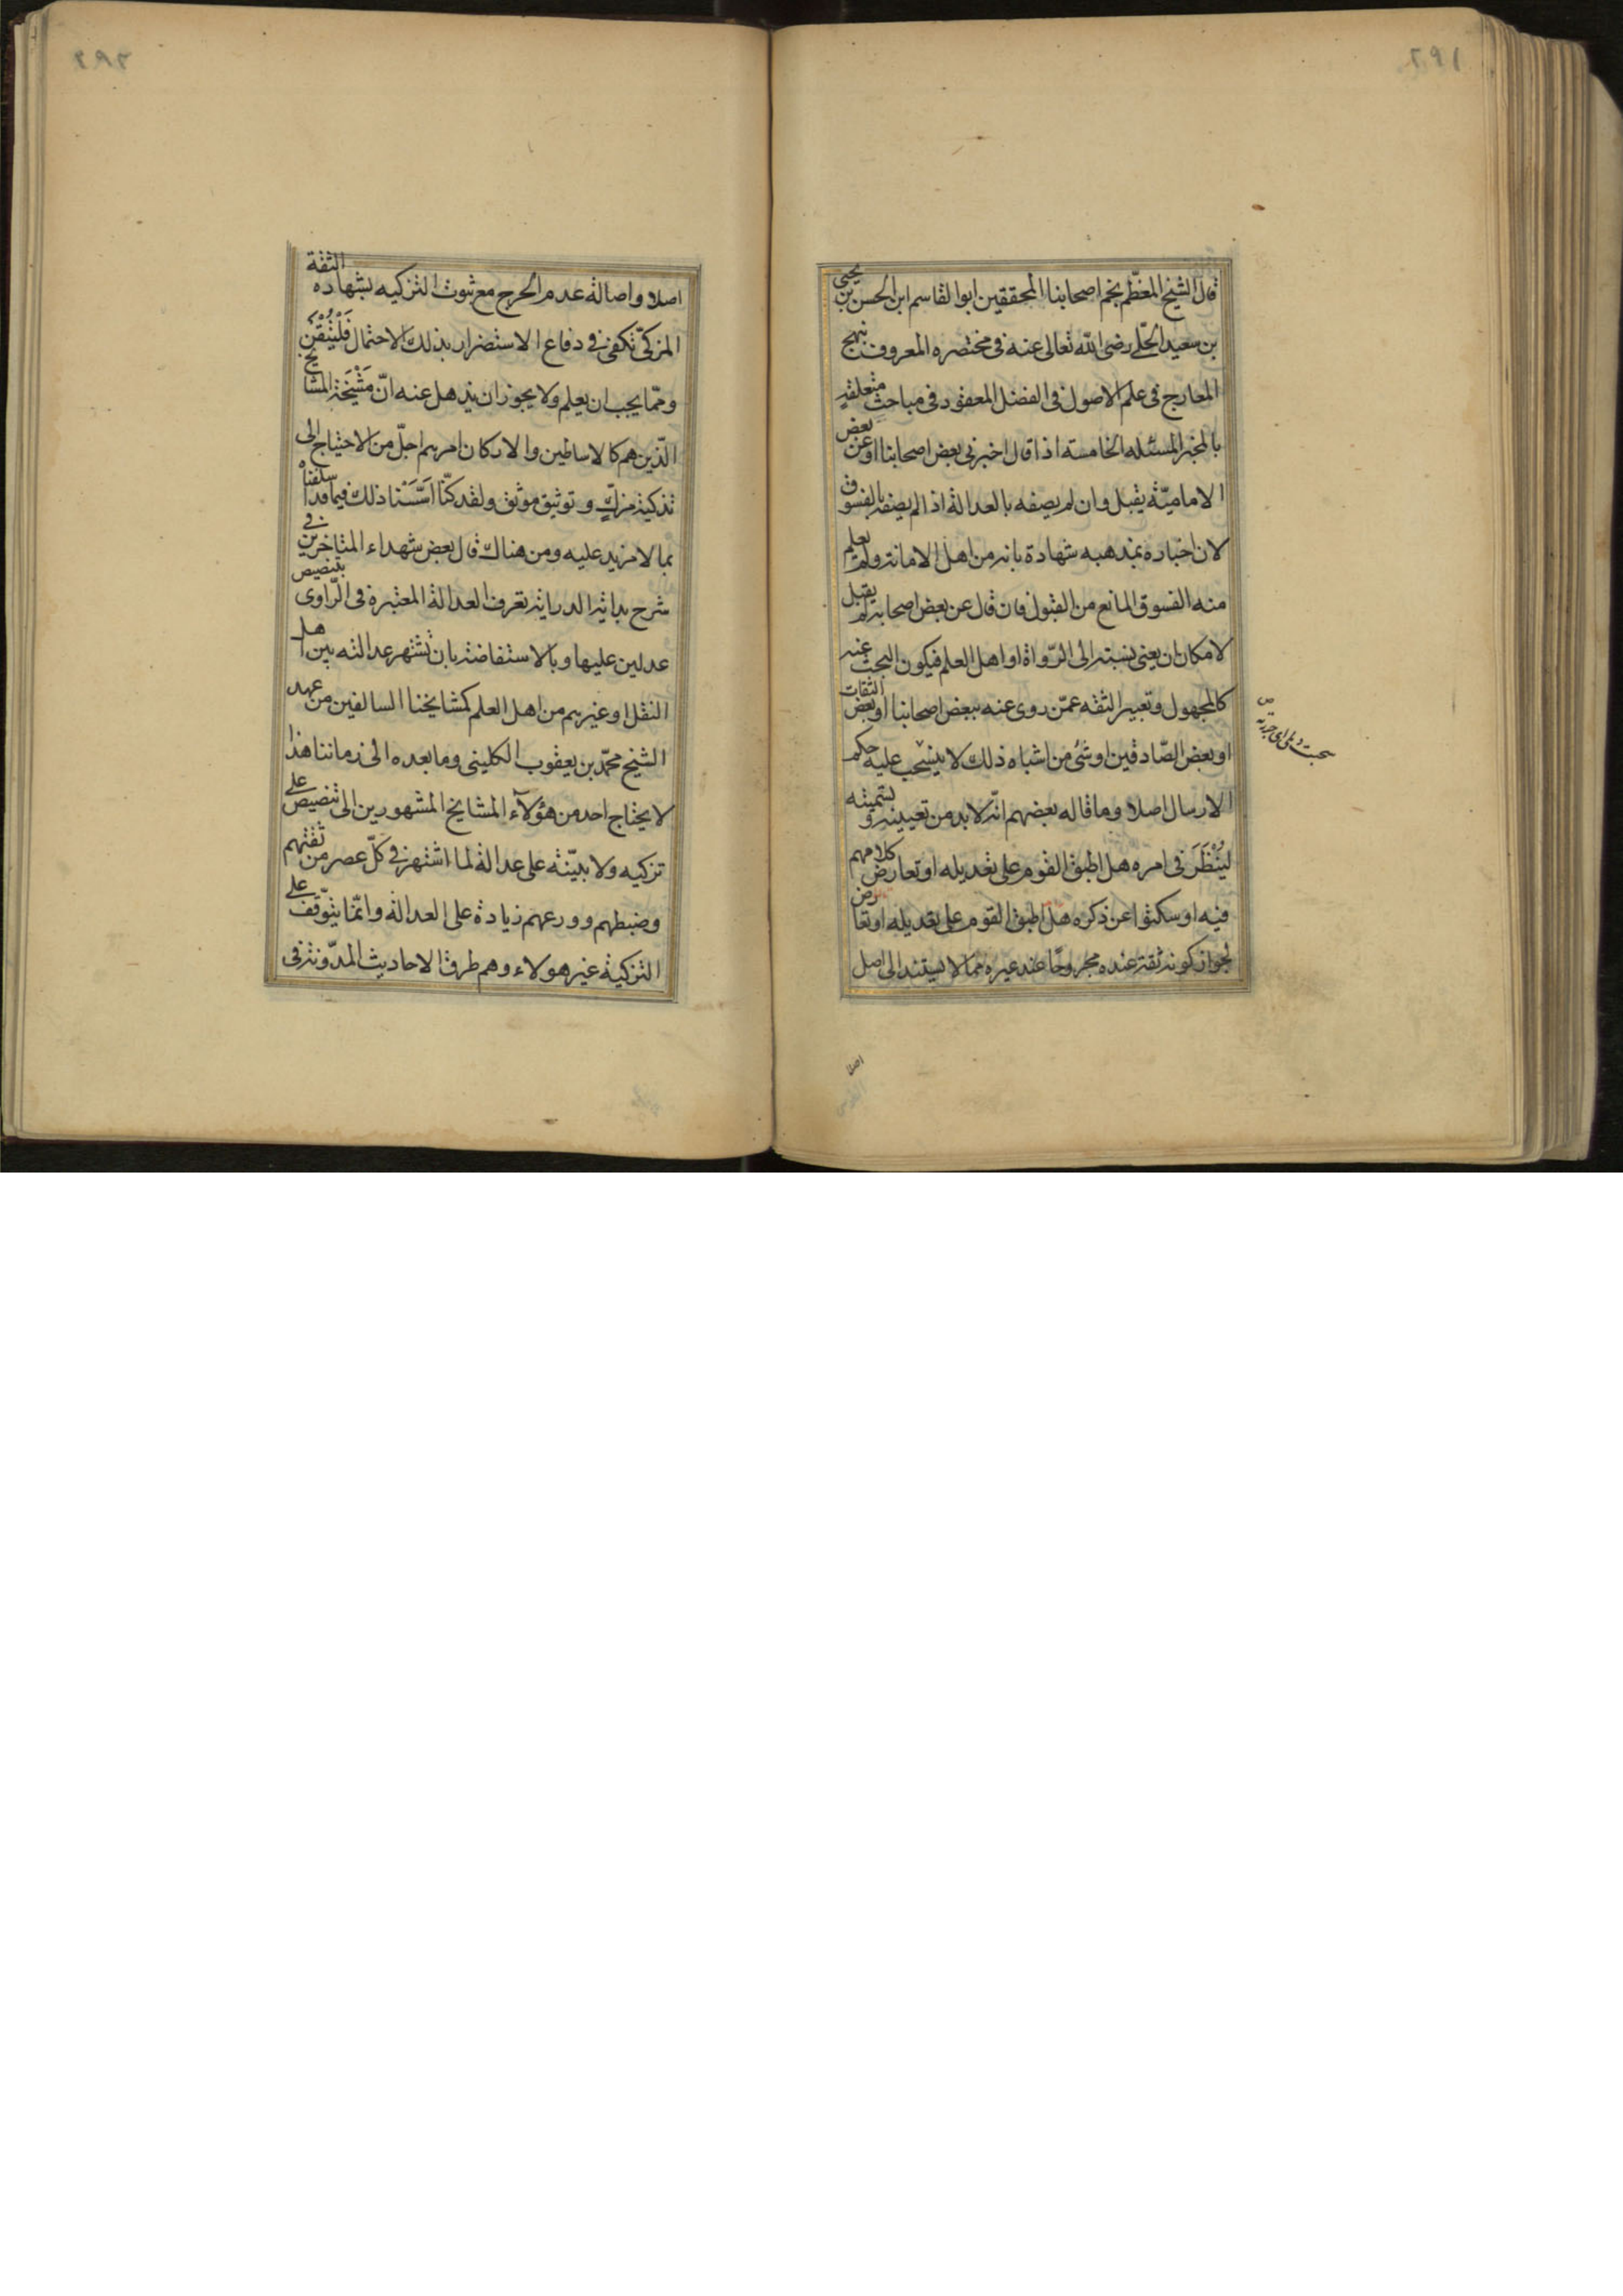 ٢٩١
قال الشيخ المعظّم نجم اصحابنا المحققين ابوا لقاسم ابن الحسن بن يحيى
بن سعيد الحلّے رضى الله تعالى عنه فى مختصره المعروف نهج
المعارج فى علم الاصول فى الفصل المعقود فى مباحث متعلقة
بالمخبر المسئله الخامسة اذا قال اخبرنى بعض اصحابنا او عن بعض
الاماميّة يقبل وان لم يصفه بالعدالة اذا لم يصفه بالفسوق
لان اخباره بمذهبه شهادة بانه من اهل الامانة ولم يعلم
منه الفسوق المانع من القبول فان قال عن بعض اصحابه لم يقبل
لامكان ان يعنى نسبته الى الرّواة او اهل العلم فيكون البحث عنه
كالمجهول وتعبير الثقه عمّن روى عنه ببعض اصحابنا او بعض الثقات
او بعض الصّادقين او شئ من اشباه ذلك لا ينسحب عليه حكم
الارسال اصلا وما قاله بعضهم انّه لابد من تعيينه و تسميته
ليُنْظَرَ فى امره هل اطبق القوم على تعديله او تعارض كلامهم
فيه او سكتوا عن ذكره هل اطبق القوم على تعديله او تعارض
لجواز كونه ثقة عنده مجروحًا عند غيره ممّا لا يستند الى اصل
اصلا
٢٩٢
اصلا واصالة عدم الجرح مع ثبوت التزكيه بشهاده الثقة
المزكّى تكفى فى دفاع الاستضرار بذلك الاحتمال فَلْيُتْقَنْ
وممّا يجب ان يعلم ولا يجوز ان يذهل عنه انّ مَشْيَخَة المشايخ
الّذين هم كالاساطين والاركان امرهم اجلّ من الاحتياج الى
تذكية مزكٍّ و توثيق موثق ولقد كنّا اَسَّسْنا ذلك فيما قد اسلفناْ
بما لا مزيد عليه ومن هناك قال بعض شهداء المتاخرين فى
شرح بداية الدراية تعرف العدالة المعتبرة فى الرّاوى بتنصيص
عدلين عليها وبالاستفاضة بان تشتهر عدالته بين اهل
النقل او غيرهم من اهل العلم كمشايخنا السالفين من عهد
الشيخ محمّد بن يعقوب الكلينى وما بعده الى زماننا هذا
لا يحتاج احد من هؤلآء المشايخ المشهورين الى تنصيص على
تزكيه ولا بيّنة على عدالة لما اشتهر فى كلّ عصر من ثقتهم
وضبطهم وورعهم زيادة على العدالة وانّما يتوقّف على
التزكية غير هولاء وهم طرق الاحاديث المدّونة فى